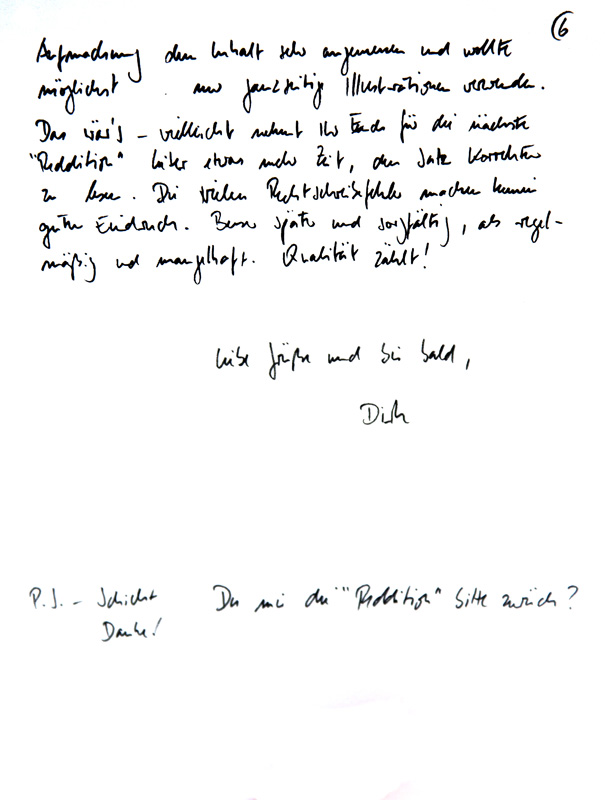 6
Aufmachung dem Inhalt sehr angemessen und wollte
möglichst nur ganzseitige Illustrationen verwenden.
Das wär's – vielleicht nehmt Ihr Euch für die nächste
"Reddition" lieber etwas mehr Zeit, den Satz Korrektur
zu lesen. Die vielen Rechtschreibfehler machen keinen
guten Eindruck. Besser später und sorgfältig, als regel-
mäßig und mangelhaft. Qualität zählt!
Liebe Grüße und bis bald,
Dirk
P.S. – Schickst Du mir die "Reddition" bitte zurück?
Danke!